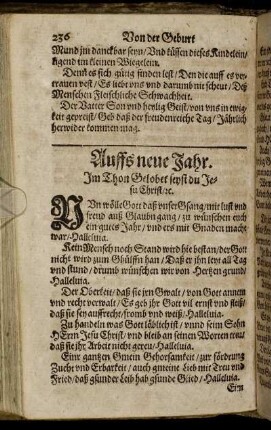 236 Von der Geburt
Mund im danckbar seyn/ Vnd küssen dieses Kindelein/
ligend im kleinen Wiegelein.
Denn es sich gütig finden lest/ Den die auff es ver-
trauen vest/ Es liebt vns vnd darumb nit scheut/ Deß
Menschen Fleischliche Schwachheit.
Der Vatter Son vnd heylig Geist/ von vns in ewig-
keit gepreist/ Geb daß der freudenreiche Tag/ Jährlich
herwider kommen mag.
Auffs neue Jahr.
Im Thon Gelobet seyst du Je-
su Christ/ ꝛc.
NVn wölle Gott daß vnser Gsang/ mit lust vnd
freud auß Glaubn gang/ zu wünschen euch
ein gutes Jahr/ vnd ers mit Gnaden mach
war/ Halleluia.
Kein Mensch noch Stand wird hie bestan/ der Gott
nicht wird zum Ghülffn han/ Daß er ihn ley all Tag
vnd stund/ drumb wünschen wir von Hertzen grund/
Halleluia.
Der Oberkeit/ daß sie jrn Gwalt/ von Gott annem
vnd recht verwalt/ Es geb jhr Gott vil ernst vnd fleiß/
daß sie sey auffrecht/ fromb vnd weiß/ Halleluia.
Zu handeln was Gott löblich ist/ vnnd seim Sohn
HErrn Jesu Christ/ vnd bleib an seinen Worten treu/
daß sie jhr Arbeit nicht gereu/ Halleluia.
Einr gantzen Gmein Gehorsamkeit/ zur fördrung
Zucht vnd Erbarkeit/ auch gmeine Lieb mit Treu vnd
Fried/ daß gsunder Leib hab gsunde Glied/ Halleluia.
Ein